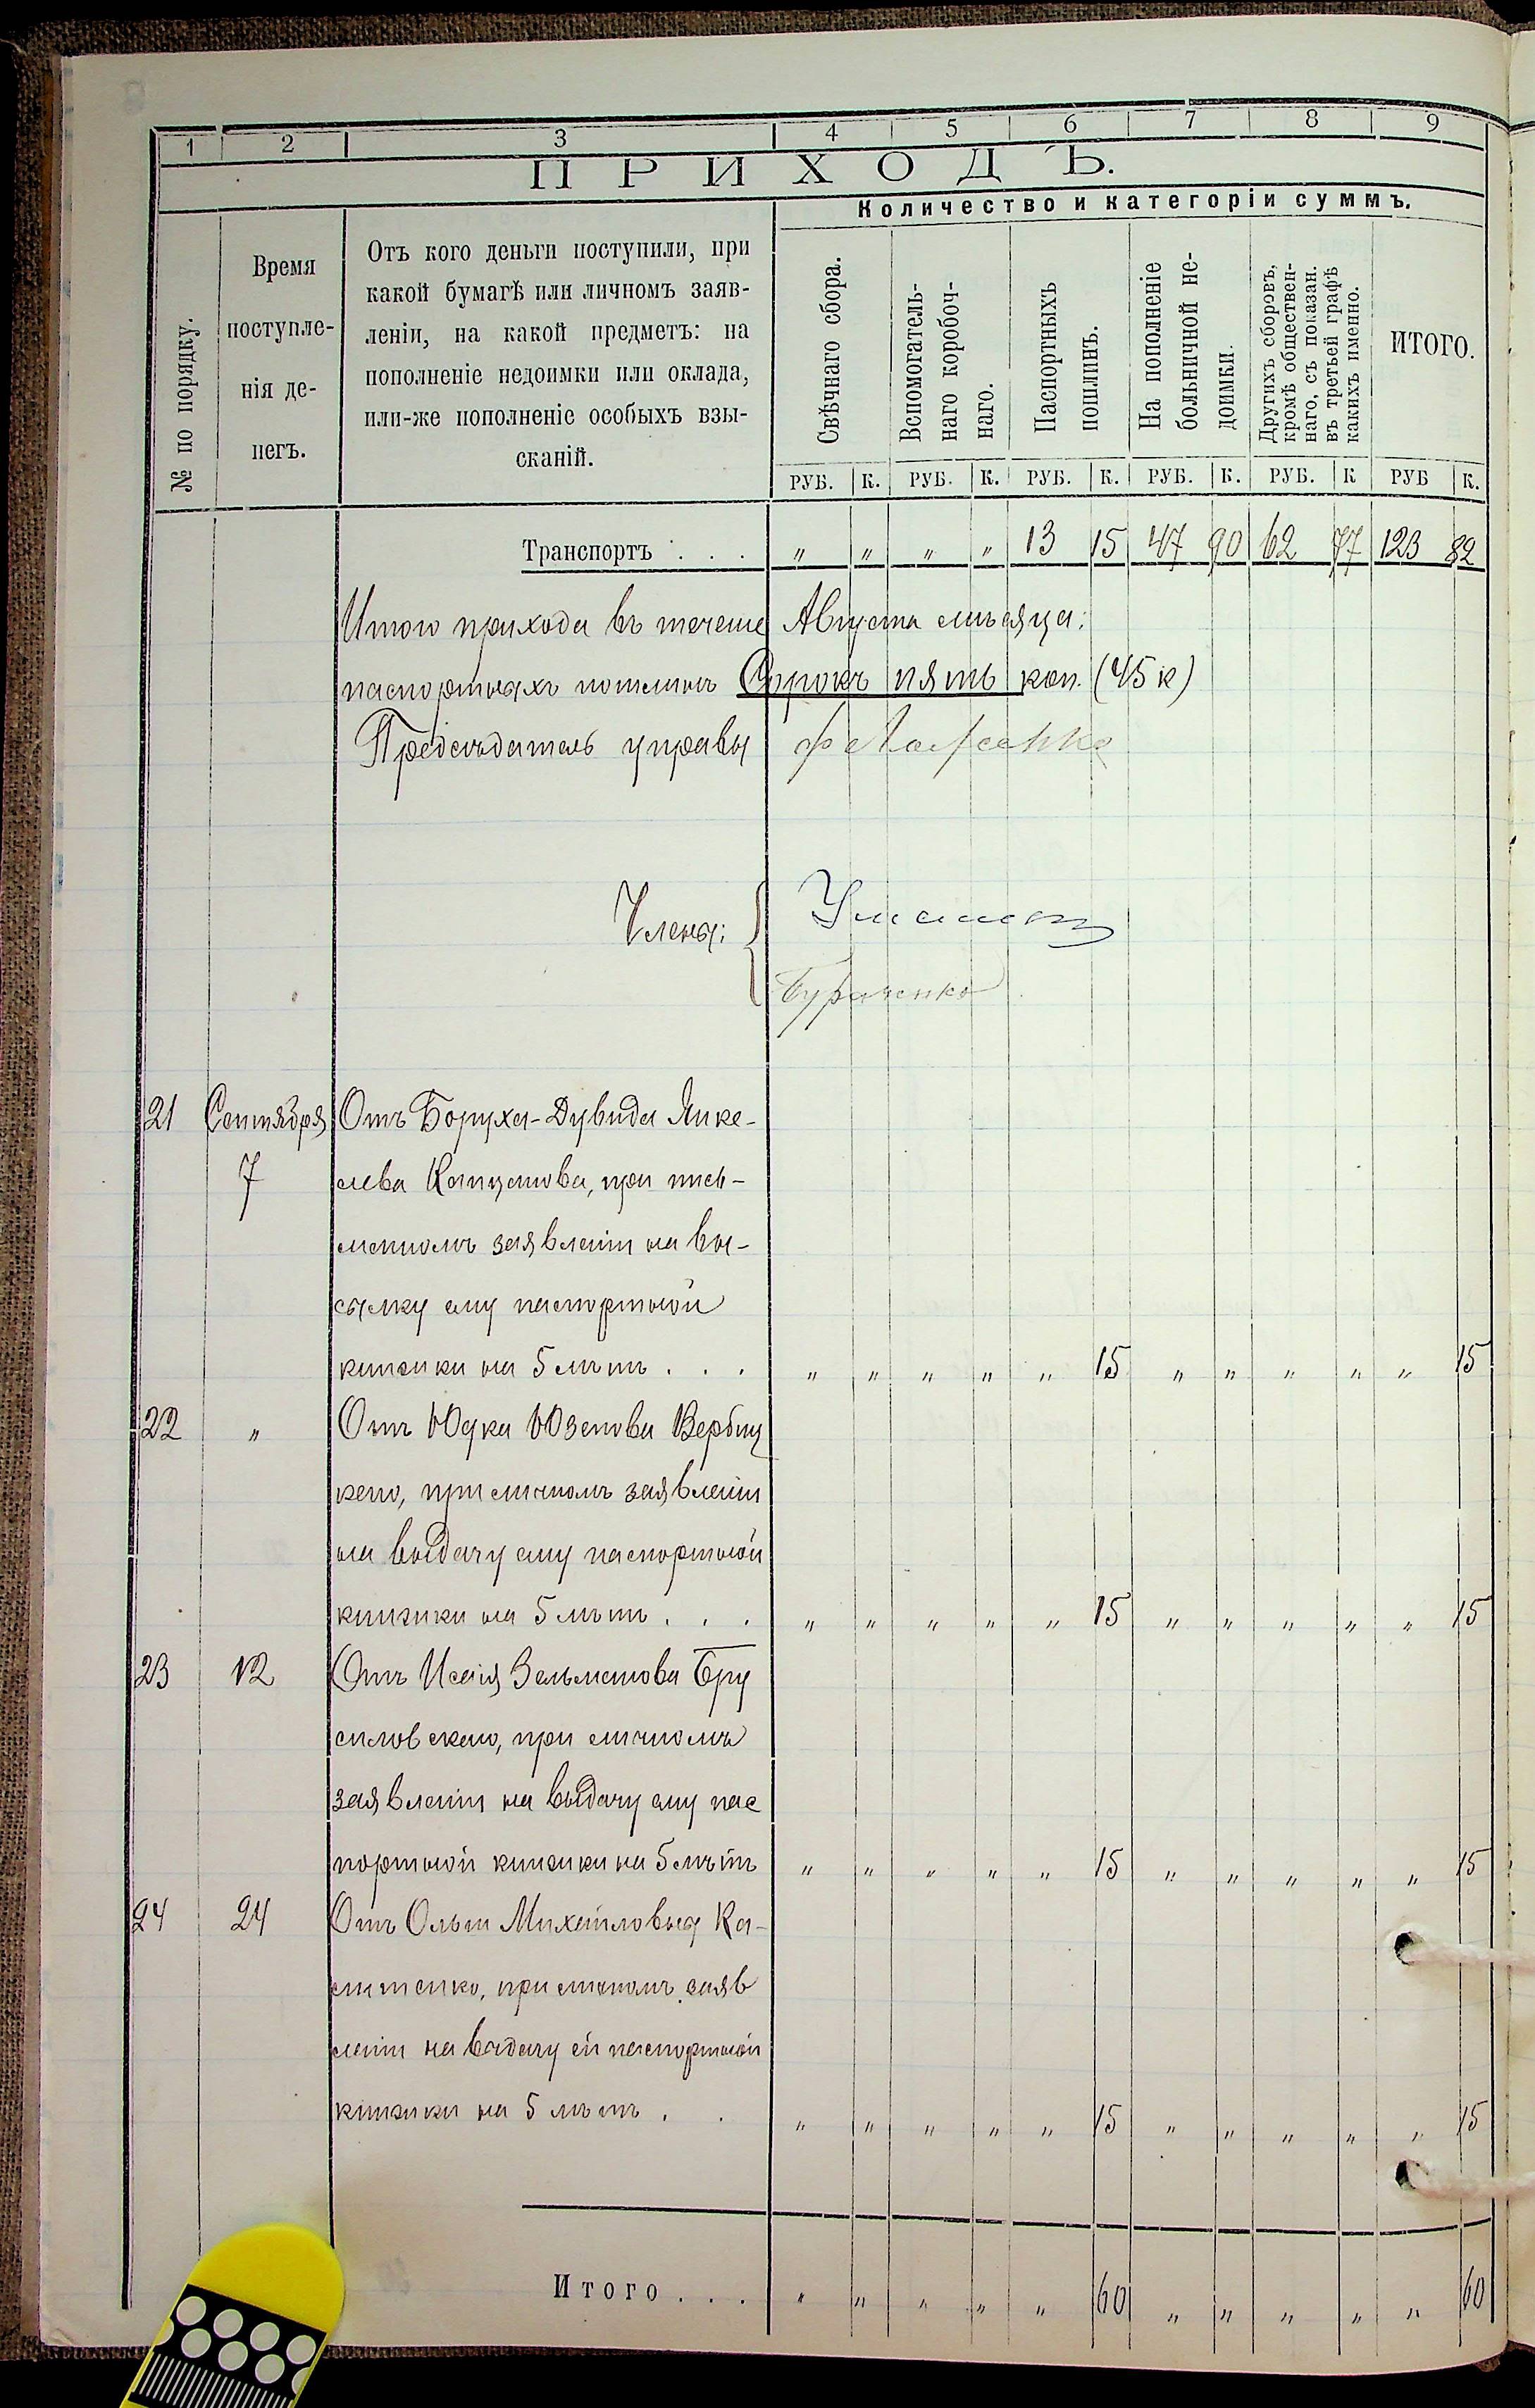 1 2 3 4 5 6 7 8 9
ПРИХОДЪ.
Количество и категоріи суммъ.
№ по порядку.
Время
поступле-
нія де-
негъ.
Отъ кого деньги поступили, при
какой бумагѣ или личномъ заяв-
леніи, на какой предметъ: на
пополненіе недоимки или оклада,
или-же пополненіе особыхъ взы-
сканій.
Свѣчнаго сбора.
Вспомогатель-
наго коробоч-
наго.
Паспортныхъ
пошлинъ.
На пополненіе
больничной не-
доимки.
Другихъ сборовъ,
кромѣ обществен-
наго, съ показан.
въ третьей графѣ
какихъ именно.
ИТОГО.
РУБ. К. РУБ. К. РУБ. К. РУБ. К. РУБ. К РУБ К.
Транспортъ . . . " " " " 13 15 47 90 62 77 123 82
Итого прихода въ теченіе Августа мѣсяца:
паспортныхъ пошлинъ Сорокъ пять коп. (45 к)
Предсѣдатель управы
Члены:
Бураченко
21 Сентября Отъ Боруха-Дувида Янке-
7 лева Капцанова, при пись-
менномъ заявленіи на вы-
сылку ему паспортной
книжки на 5 лѣтъ . . . " " " " " 15 " " " " " 15
22 " Отъ Юдки Юзепова Вербиц
каго, при личномъ заявленіи
на выдачу ему паспортной
книжки на 5 лѣтъ . . . " " " " " 15 " " " " " 15
23 12 Отъ Исаія Зельманова Бру
силовскаго, при личномъ
заявленіи на выдачу ему пас
портной книжки на 5 лѣтъ " " " " " 15 " " " " " 15
24 24 Отъ Ольги Михайловны Ка-
ситенко, при личномъ заяв
леніи на выдачу ей паспортной
книжки на 5 лѣтъ . . " " " " " 15 " " " " " 15
Итого . . . " " " " " 60 " " " " " 60